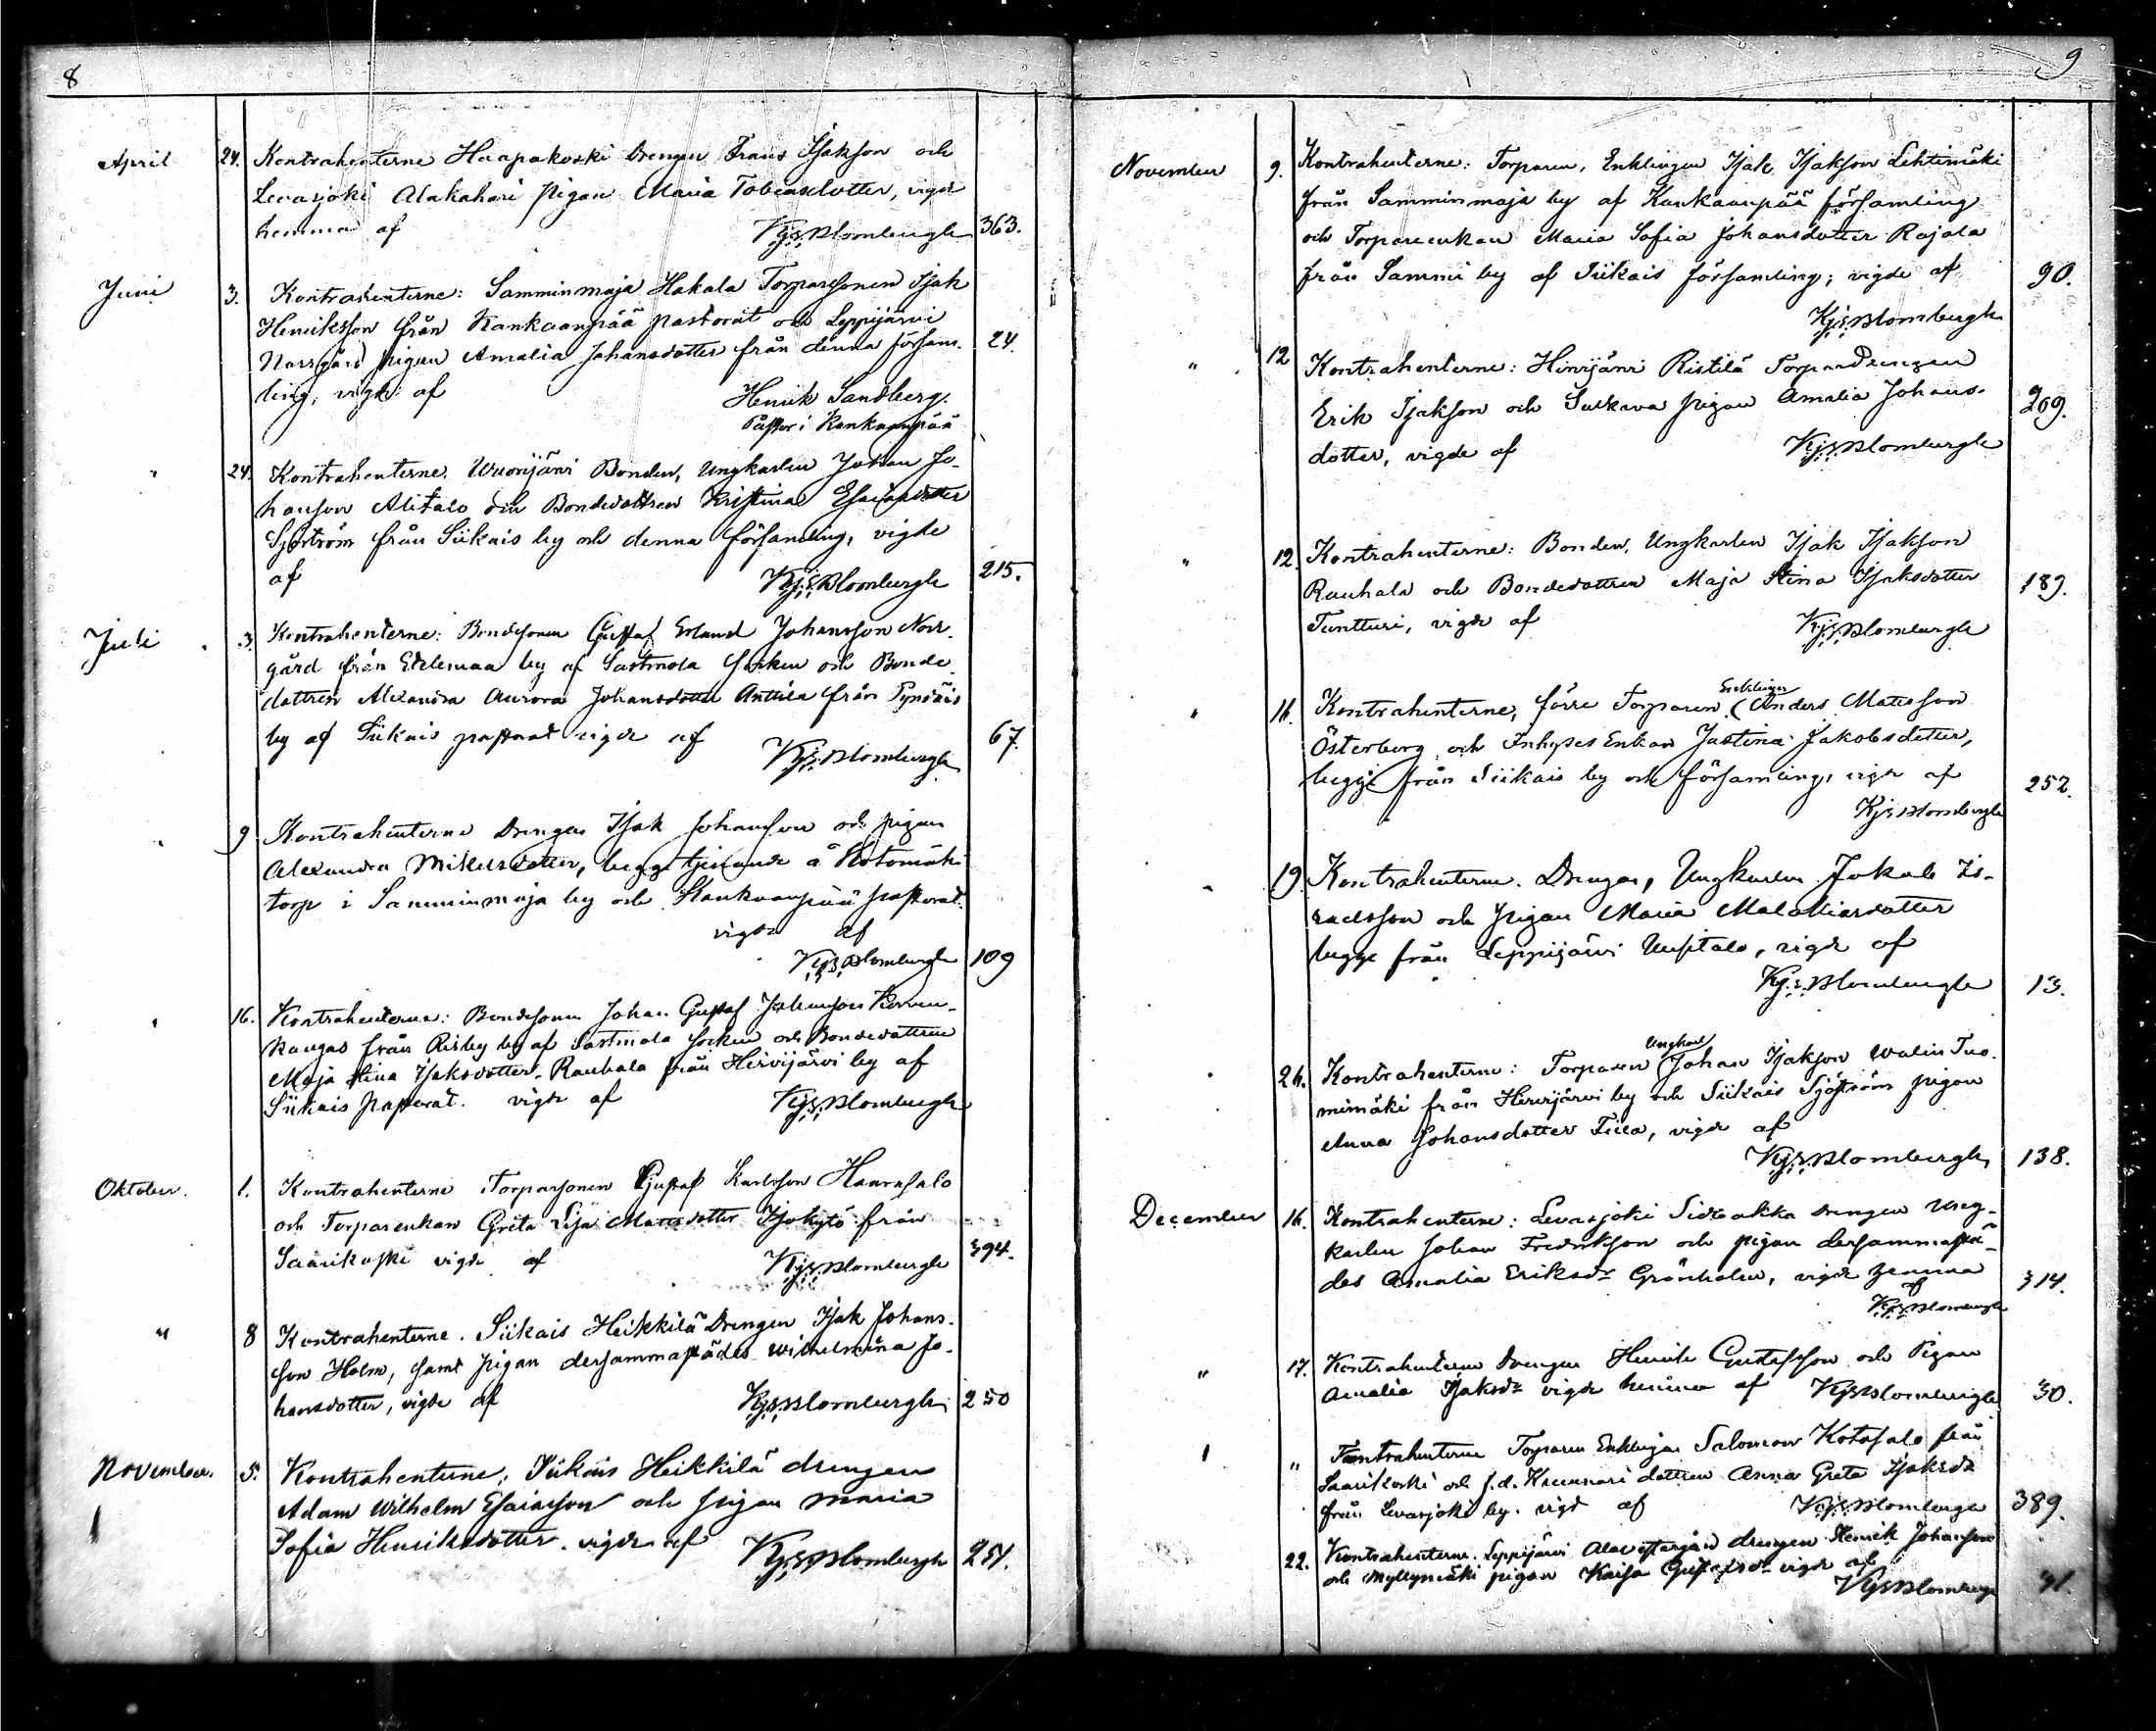 8
April 24. Kontrahenterne Haapakoski Drengen Frans Isakson och
Levasjoki Alakahari pigan Maria Tobiasdotter, vigde
hemma af KjsBlombergh 363.
Juni 3. Kontrahenterne: Samminmaja Hakala Torparesonen Isak
Henriksson från Kankaanpää pastorat och Leppijärvi
Norrgård pigan Amalia Johansdotter från denna försam- 24.
ling, vigde af Henrik Sandberg.
Pastor i Kankaanpää
" 24. Kontrahenterne. Wuorijärvi Bonden, Ungkarlen Johan Jo-
hanson Alitalo och Bondedottren Kristina Esaiasdotter
Sjöström från Siikais by och denna församling, vigde
af KjsBlombergh 215.
Juli 3. Kontrahenterne: Bondesonen Gustaf Erland Johansson Norr-
gård från Etelemaa by af Sastmola socken och Bonde-
dottren Alexandra Aurora Johansdotter Anttila från Pyntäis
by af Siikais pastorat vigde af KjsBlombergh 67.
9 Kontrahenterne Drengen Isak Johanson och pigan
Alexandra Mikelsdotter, begge tjenande å Kotomäki
torp i Samminmaja by och Kankaanpää pastorat.
vigde af
KjsBlombergh 109
16. Kontrahenterne: Bondesonen Johan Gustaf Johanson Korven-
kangas från Risby by af Sastmola socken och Bondedottren
Maja Stina Isaksdotter Rauhala från Hirvijärvi by af
Siikais pastorat. vigde af KjsBlombergh
Oktober. 1. Kontrahenterne Torparsonen Gustaf Karlsson Haarasalo
och Torparenkan Greta Lisa Mattsdotter Isokytö från
Saarikoski vigde af KjsBlombergh 394.
" 8 Kontrahenterne. Siikais Heikkilä Drengen Isak Johans-
son Holm, samt pigan dersammastädes Wilhelmina Jo-
hansdotter, vigde af KjsBlombergh 250
November. 5. Kontrahenterne, Siikais Heikkilä drengen
Adam Wilhelm Esaiasson och pigan Maria
Sofia Henriksdotter. vigde af KjsBlombergh 251.
9
November 9. Kontrahenterne: Torparen, Enklingen Isak Isakson Lehtimäki
från Samminmaja by af Kankaanpää församling
och Torpareenkan Maria Sofia Johansdotter Rajala
från Sammi by af Siikais församling; vigde af 90.
KjsBlombergh
" 12 Kontrahenterne: Hirvijärvi Ristilä TorpareDrengen
Erik Isakson och Sulkava pigan Amalia Johans- 209.
dotter, vigde af KjsBlombergh
" 12. Kontrahenterne: Bonden, Ungkarlen Isak Isakson
Rauhala och Bondedottren Maja Stina Isaksdotter 189.
Tuntturi, vigde af KjsBlombergh
Enklingen
" 16. Kontrahenterne, förre Torparen (Anders Mattsson
Österberg och Inhyses Enkan Justina Jakobsdotter,
begge från Siikais by och församling, vigde af 252.
KjsBlombergh
19. Kontrahenterne. Drengen, Ungkarlen Jakob Is-
raelsson och pigan Maria Malakiasdotter
begge från Leppijärvi Uusitalo, vigde af
KjsBlombergh 13.
Ungkarl
26. Kontrahenterne: Torparen (Johan Isakson Walin Tuo-
mimäki från Hirvijärvi by och Siikais Sjöström pigan
Anna Johansdotter, vigde af
KjsBlombergh 138.
December 16. Kontrahenterne: Levasjoki drengen Ung-
karlen Johan Fredrikson och pigan dersammastä-
des Amalia Eriksdr Grönholm, vigde hemma 314.
af
KjsBlombergh
" 17. Kontrahenterne Drengen Henrik Gustafsson och Pigan
Amalia Isaksdr vigde hemma af KjsBlombergh 30.
" Kontrahenterne Torparen Enklingen Salomon Kotasalo från
Saarikoski och f.d. dottren Anna Greta Isaksdr
från Levasjoki by. vigd af KjsBlombergh 389.
22. Kontrahenterne. Leppijärvi drengen Henrik Johanson
och Myllymäki pigan Kaisa Gustafsdr vigde af
KjsBlombergh 41.